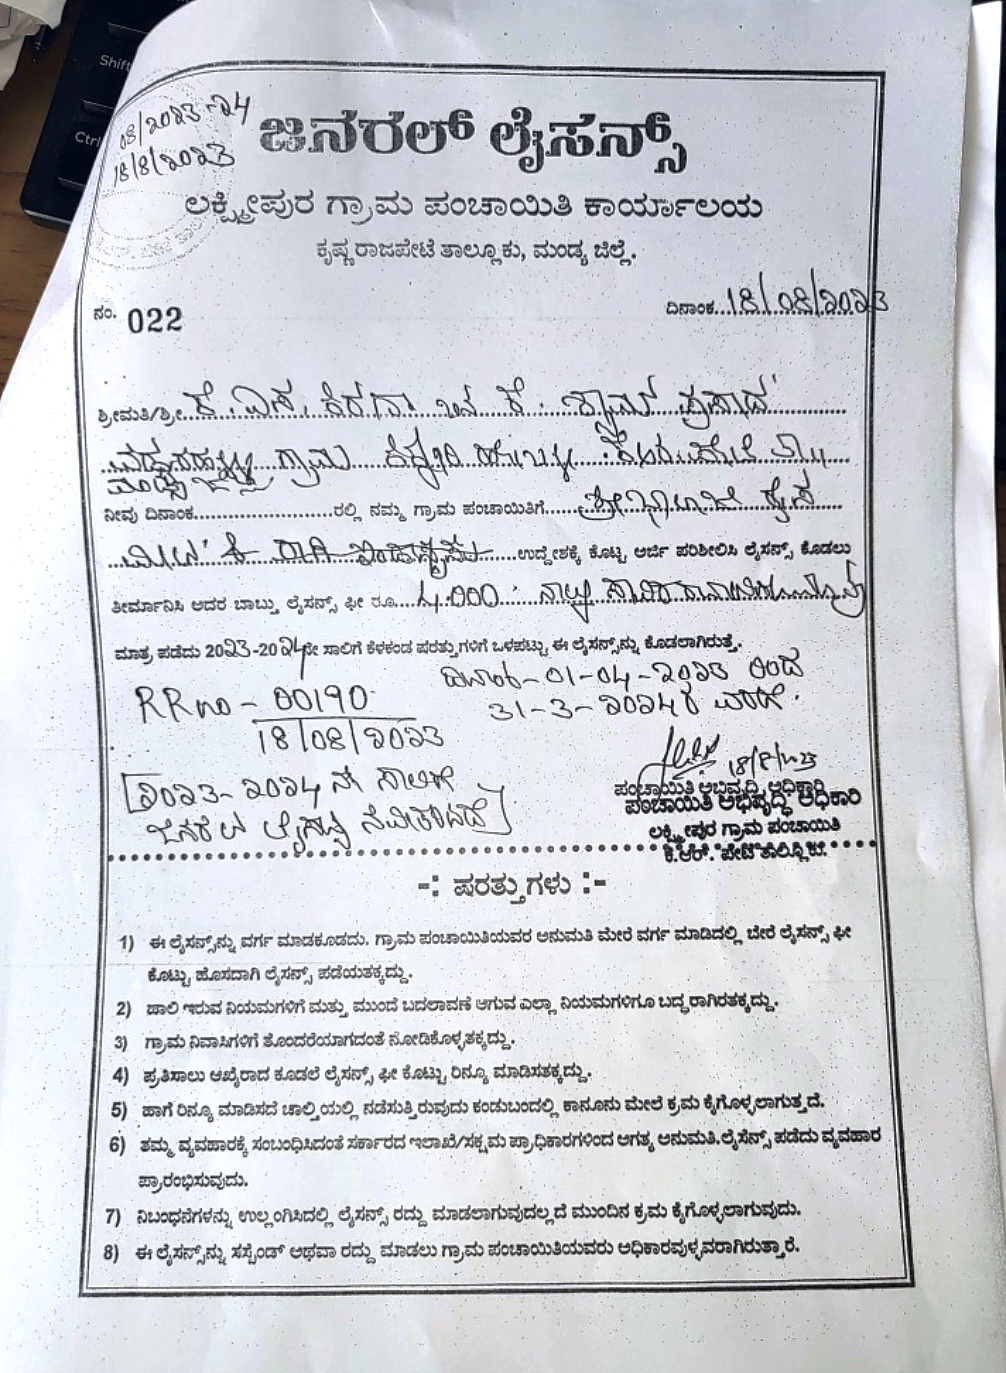 Shift
Ctrl
08/೨೦೨3-೨4
18/8/೨೦೨3
ಜನರಲ್ ಲೈಸನ್ಸ್
ಲಕ್ಷ್ಮೀಪುರ ಗ್ರಾಮ ಪಂಚಾಯಿತಿ ಕಾರ್ಯಾಲಯ
ಕೃಷ್ಣರಾಜಪೇಟೆ ತಾಲ್ಲೂಕು, ಮಂಡ್ಯ ಜಿಲ್ಲೆ.
ನಂ. 022
ದಿನಾಂಕ...18/08/೨೦೨3
ಶ್ರೀಮತಿ/ಶ್ರೀ..ಕೆ.ಎಸ್. ಕಿರಣಾ ಬಿನ್ ಕೆ. ಶ್ಯಾಮ್ ಪ್ರಸಾದ್
ಗ್ರಾಮ ಕಿಕ್ಕೇರಿ ಹೋಬಳಿ ಕೆ.ಆರ್.ಪೇಟೆ ತಾ||
ಮಂಡ್ಯ ಜಿಲ್ಲೆ
ನೀವು ದಿನಾಂಕ..............................ರಲ್ಲಿ ನಮ್ಮ ಗ್ರಾಮ ಪಂಚಾಯಿತಿಗೆ.....ಶ್ರೀ ರೈಸ್
ಮಿಲ್ ಉದ್ದೇಶಕ್ಕೆ ಕೊಟ್ಟ ಅರ್ಜಿ ಪರಿಶೀಲಿಸಿ ಲೈಸನ್ಸ್ ಕೊಡಲು
ತೀರ್ಮಾನಿಸಿ ಅದರ ಬಾಬ್ತು ಲೈಸನ್ಸ್ ಫೀ ರೂ....4.000 ನಾಲ್ಕು ಸಾವಿರ ರೂಪಾಯಿಗಳು
ಮಾತ್ರ ಪಡೆದು 20೨3-20೨4ನೇ ಸಾಲಿಗೆ ಕೆಳಕಂಡ ಷರತ್ತುಗಳಿಗೆ ಒಳಪಟ್ಟು ಈ ಲೈಸನ್ಸ್‌ನ್ನು ಕೊಡಲಾಗಿರುತ್ತೆ.
ದಿನಾಂಕ-01-04-೨೦೨3 ರಿಂದ
31-3-೨೦೨4ರ ವರೆಗೆ.
RR no - 00190
18/08/೨೦೨3
[೨೦೨3-೨೦೨4 ನೇ ಸಾಲಿಗೆ
ಜನರಲ್ ಲೈಸನ್ಸ್ ನವೀಕರಿಸಿದೆ]
18/8/೨೦೨3
ಪಂಚಾಯಿತಿ ಅಭಿವೃದ್ಧಿ ಅಧಿಕಾರಿ
ಪಂಚಾಯಿತಿ ಅಭಿವೃದ್ಧಿ ಅಧಿಕಾರಿ
ಲಕ್ಷ್ಮೀಪುರ ಗ್ರಾಮ ಪಂಚಾಯಿತಿ
ಕೆ.ಆರ್. ಪೇಟೆ ತಾಲ್ಲೂಕು.
-: ಷರತ್ತುಗಳು :-
1) ಈ ಲೈಸನ್ಸ್‌ನ್ನು ವರ್ಗ ಮಾಡಕೂಡದು. ಗ್ರಾಮ ಪಂಚಾಯಿತಿಯವರ ಅನುಮತಿ ಮೇರೆ ವರ್ಗ ಮಾಡಿದಲ್ಲಿ ಬೇರೆ ಲೈಸನ್ಸ್ ಫೀ
ಕೊಟ್ಟು ಹೊಸದಾಗಿ ಲೈಸನ್ಸ್ ಪಡೆಯತಕ್ಕದ್ದು.
2) ಹಾಲಿ ಇರುವ ನಿಯಮಗಳಿಗೆ ಮತ್ತು ಮುಂದೆ ಬದಲಾವಣೆ ಆಗುವ ಎಲ್ಲಾ ನಿಯಮಗಳಿಗೂ ಬದ್ಧರಾಗಿರತಕ್ಕದ್ದು.
3) ಗ್ರಾಮ ನಿವಾಸಿಗಳಿಗೆ ತೊಂದರೆಯಾಗದಂತೆ ನೋಡಿಕೊಳ್ಳತಕ್ಕದ್ದು.
4) ಪ್ರತಿಸಾಲು ಆಖೈರಾದ ಕೂಡಲೆ ಲೈಸನ್ಸ್ ಫೀ ಕೊಟ್ಟು ರಿನ್ಯೂ ಮಾಡಿಸತಕ್ಕದ್ದು.
5) ಹಾಗೆ ರಿನ್ಯೂ ಮಾಡಿಸದೆ ಚಾಲ್ತಿಯಲ್ಲಿ ನಡೆಸುತ್ತಿರುವುದು ಕಂಡುಬಂದಲ್ಲಿ ಕಾನೂನು ಮೇಲೆ ಕ್ರಮ ಕೈಗೊಳ್ಳಲಾಗುತ್ತದೆ.
6) ತಮ್ಮ ವ್ಯವಹಾರಕ್ಕೆ ಸಂಬಂಧಿಸಿದಂತೆ ಸರ್ಕಾರದ ಇಲಾಖೆ/ಸಕ್ಷಮ ಪ್ರಾಧಿಕಾರಗಳಿಂದ ಅಗತ್ಯ ಅನುಮತಿ.ಲೈಸೆನ್ಸ್ ಪಡೆದು ವ್ಯವಹಾರ
ಪ್ರಾರಂಭಿಸುವುದು.
7) ನಿಬಂಧನೆಗಳನ್ನು ಉಲ್ಲಂಗಿಸಿದಲ್ಲಿ ಲೈಸನ್ಸ್ ರದ್ದು ಮಾಡಲಾಗುವುದಲ್ಲದೆ ಮುಂದಿನ ಕ್ರಮ ಕೈಗೊಳ್ಳಲಾಗುವುದು.
8) ಈ ಲೈಸನ್ಸ್‌ನ್ನು ಸಸ್ಪೆಂಡ್ ಅಥವಾ ರದ್ದು ಮಾಡಲು ಗ್ರಾಮ ಪಂಚಾಯಿತಿಯವರು ಅಧಿಕಾರವುಳ್ಳವರಾಗಿರುತ್ತಾರೆ.